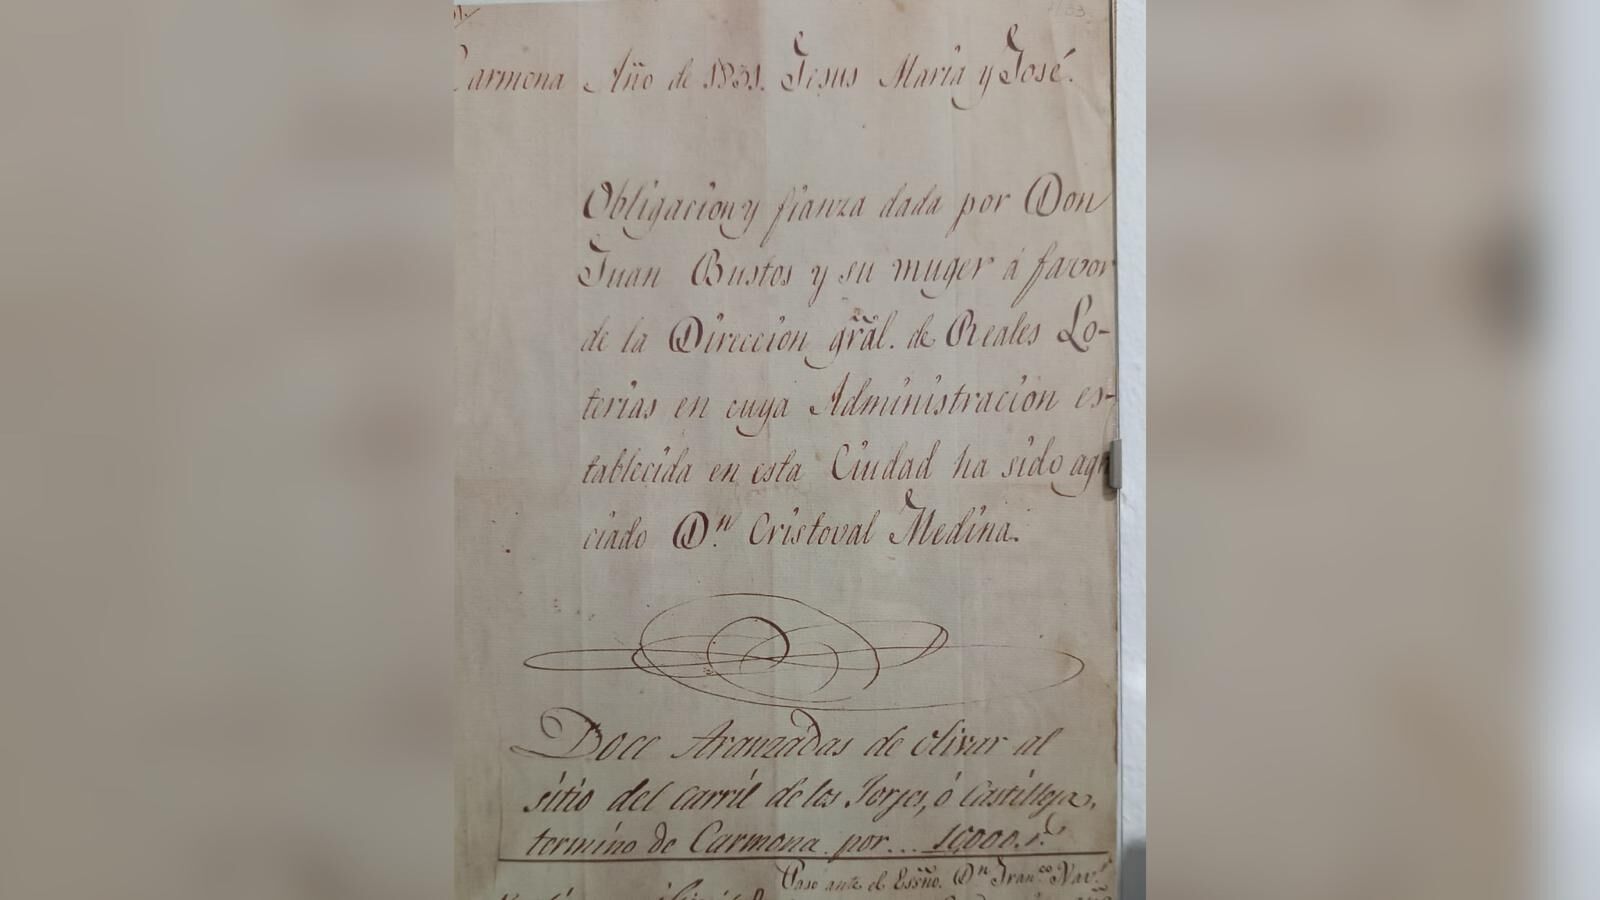 Carmona Año de 1831. Jesus Maria y José.
Obligacion y fianza dada por Don
Juan Bustos y su muger á favor
de la Direccion gr̃al. de Reales Lo-
terias en cuya Administracion es-
tablecida en esta Ciudad ha sido agra
ciado Dn. Cristoval Medina.
Doce Aranzadas de olivar al
sitio del carril de los Jorjes, ó Castilleja,
termino de Carmona por... 10,000. r.s
Paso ante el Essño. Dn Franco Nav.